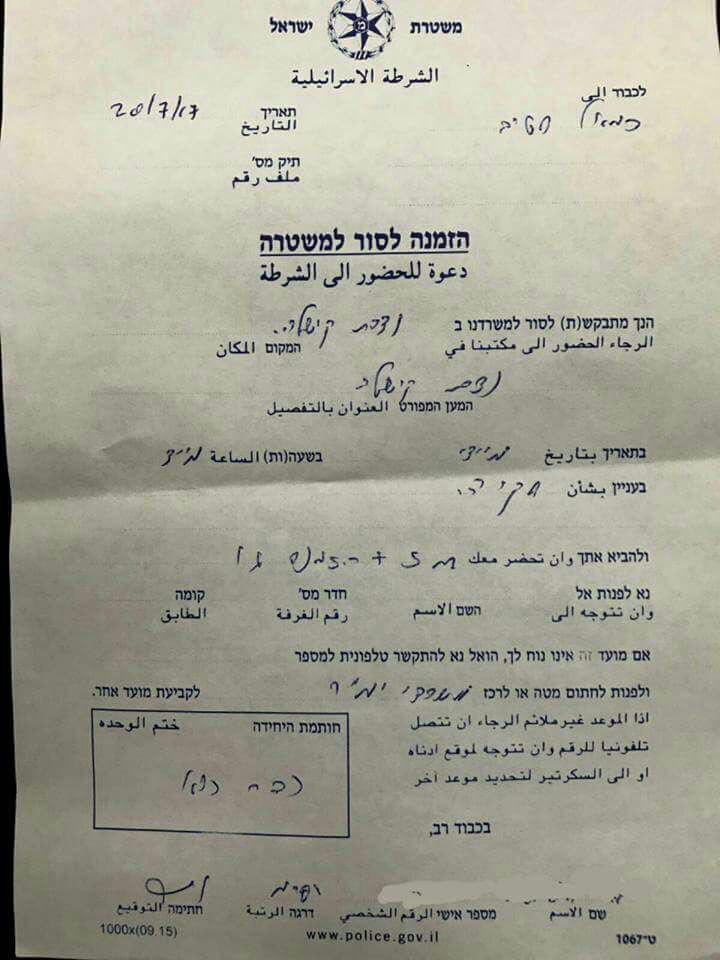 משטרת ישראל
الشرطة الاسرائيلية
לכבוד الى
כמאל חטיב
תאריך 20/7/17
التاريخ
תיק מס'
ملف رقم
הזמנה לסור למשטרה
دعوة للحضور الى الشرطة
הנך מתבקש(ת) לסור למשרדנו ב קישלה
الرجاء الحضور الى مكتبنا في המקום المكان
קישלה
המען המפורט العنوان بالتفصيل
בתאריך بتاريخ מיידי בשעה(ות) الساعة מייד
בעניין بشأن חקירה
ולהביא אתך وان تحضر معك ת ז + הזמנה זו
נא לפנות אל חדר מס' קומה
وان تتوجه الى השם الاسم رقم الغرفة الطابق
אם מועד זה אינו נוח לך, הואל נא להתקשר טלפונית למספר
ולפנות לחתום מטה או לרכז משרדי ימ"ר לקביעת מועד אחר.
اذا الموعد غير ملائم الرجاء ان تتصل
تلفونيا للرقم وان تتوجه لموقع ادناه
او الى السكرتير لتحديد موعد آخر
חותמת היחידה ختم الوحده
בכבוד רב,
שם الاسم מספר אישי الرقم الشخصي דרגה الرتبة חתימה التوقيع
1000x(09.15) www.police.gov.il ט-1067